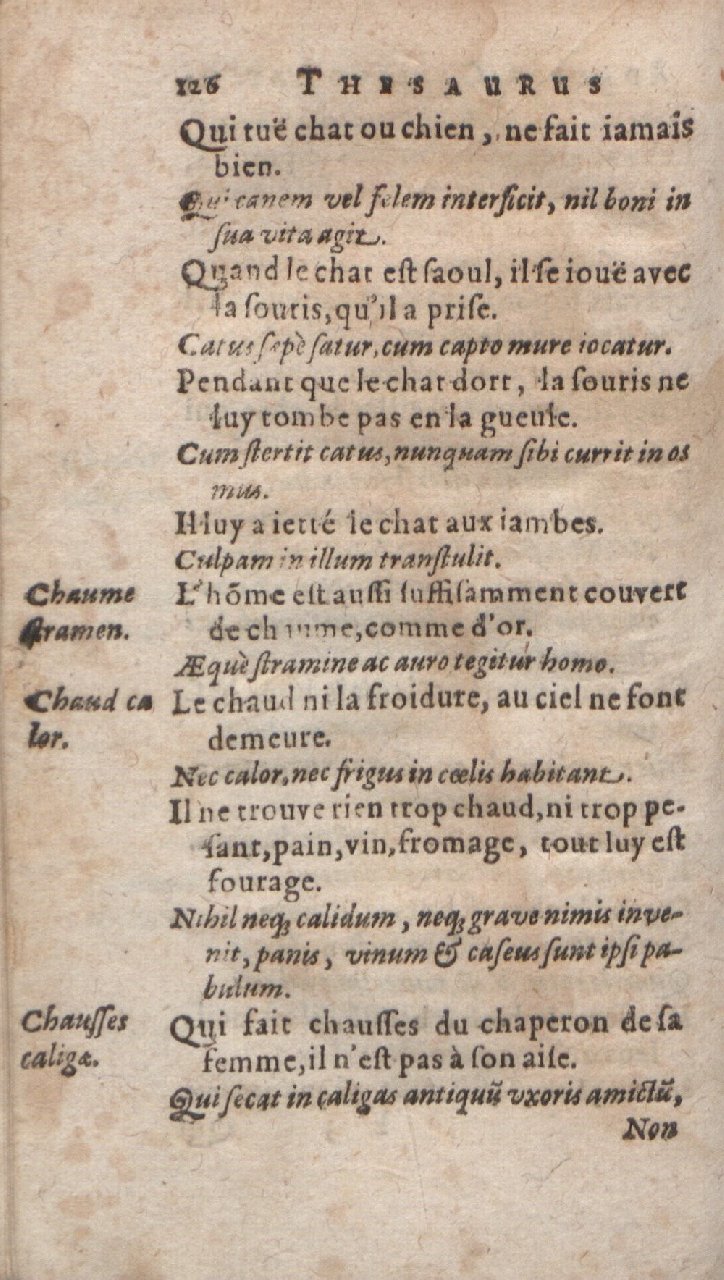 126 THESAURUS
Qui tuë chat ou chien, ne fait iamais
bien.
Qui canem vel felem interficit, nil boni in
sua vita agit.
Quand le chat est saoul, il se iouë avec
la souris, qu'il a prise.
Catus sepè satur, cum capto mure iocatur.
Pendant que le chat dort, la souris ne
luy tombe pas en la gueule.
Cum stertit catus, nunquam sibi currit in os
mus.
Il luy a ietté le chat aux iambes.
Culpam in illum transtulit.
Chaume
stramen.
L'hõme est aussi suffisamment couvert
de chaume, comme d'or.
Æquè stramine ac auro tegitur homo.
Chaud ca
lor.
Le chaud ni la froidure, au ciel ne font
demeure.
Nec calor, nec frigus in cœlis habitant.
Il ne trouve rien trop chaud, ni trop pe-
sant, pain, vin, fromage, tout luy est
fourage.
Nihil neq; calidum, neq; grave nimis inve-
nit, panis, vinum & caseus sunt ipsi pa-
bulum.
Chausses
caligæ.
Qui fait chausses du chaperon de sa
femme, il n'est pas à son aise.
Qui secat in caligas antiquũ vxoris amictũ,
Non